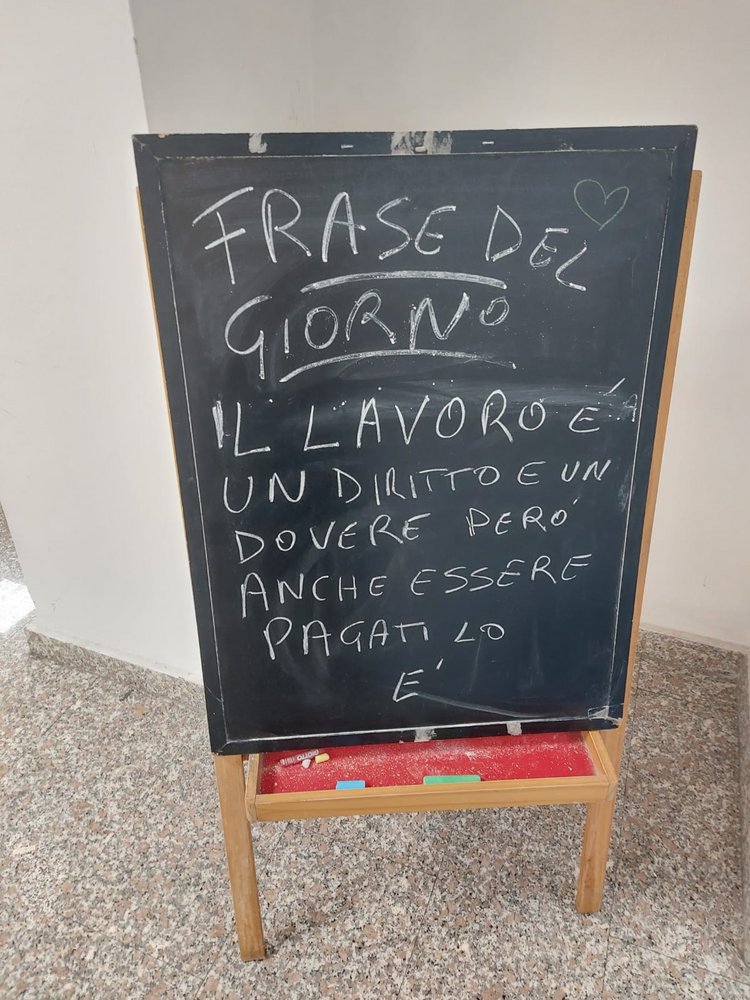 FRASE DEL
GIORNO
IL LAVORO E'
UN DIRITTO E UN
DOVERE PERO'
ANCHE ESSERE
PAGATI LO
E'